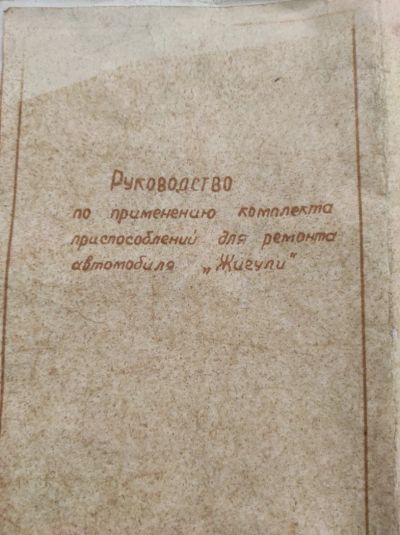 Руководство
по применению комплекта
приспособлений для ремонта
автомобиля „Жигули"